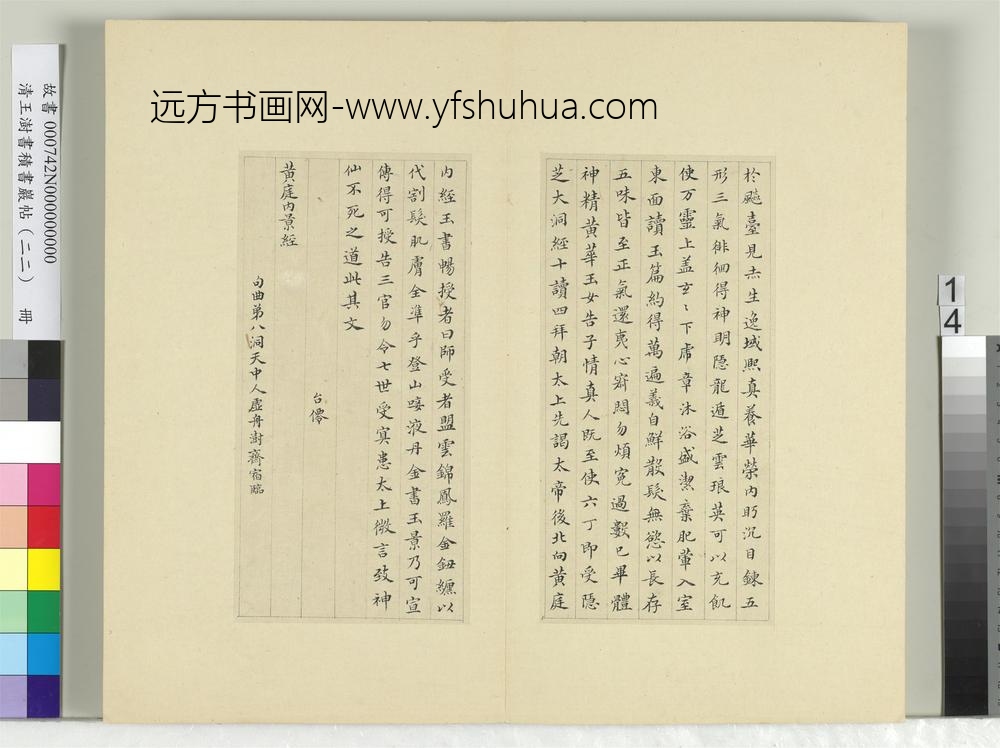 远方书画网-www.yfshuhua.com
故書 000742N000000000
清王澍書積書巖帖(二二) 冊
1
4
於飈臺見赤生逸域熙真養華榮內盻沉目鍊五
形三氣徘徊得神明隱龍遁芝雲琅英可以充飢
使万靈上盖玄〻下席章沐浴盛潔棄肥葷入室
東面讀玉篇約得萬遍義自鮮散髮無慾以長存
五味皆至正氣還夷心寂悶勿煩冤過數已畢體
神精黃華玉女告子情真人既至使六丁即受隱
芝大洞經十讀四拜朝太上先謁太帝後北向黃庭
內經玉書暢授者曰師受者盟雲錦鳳羅金鈕纏以
代割髮肌膚全準乎登山唼液丹金書玉景乃可宣
傳得可授告三官勿令七世受冥患太上微言致神
仙不死之道此其文
台僊
黃庭內景經
句曲第八洞天中人虛舟澍齋宿臨